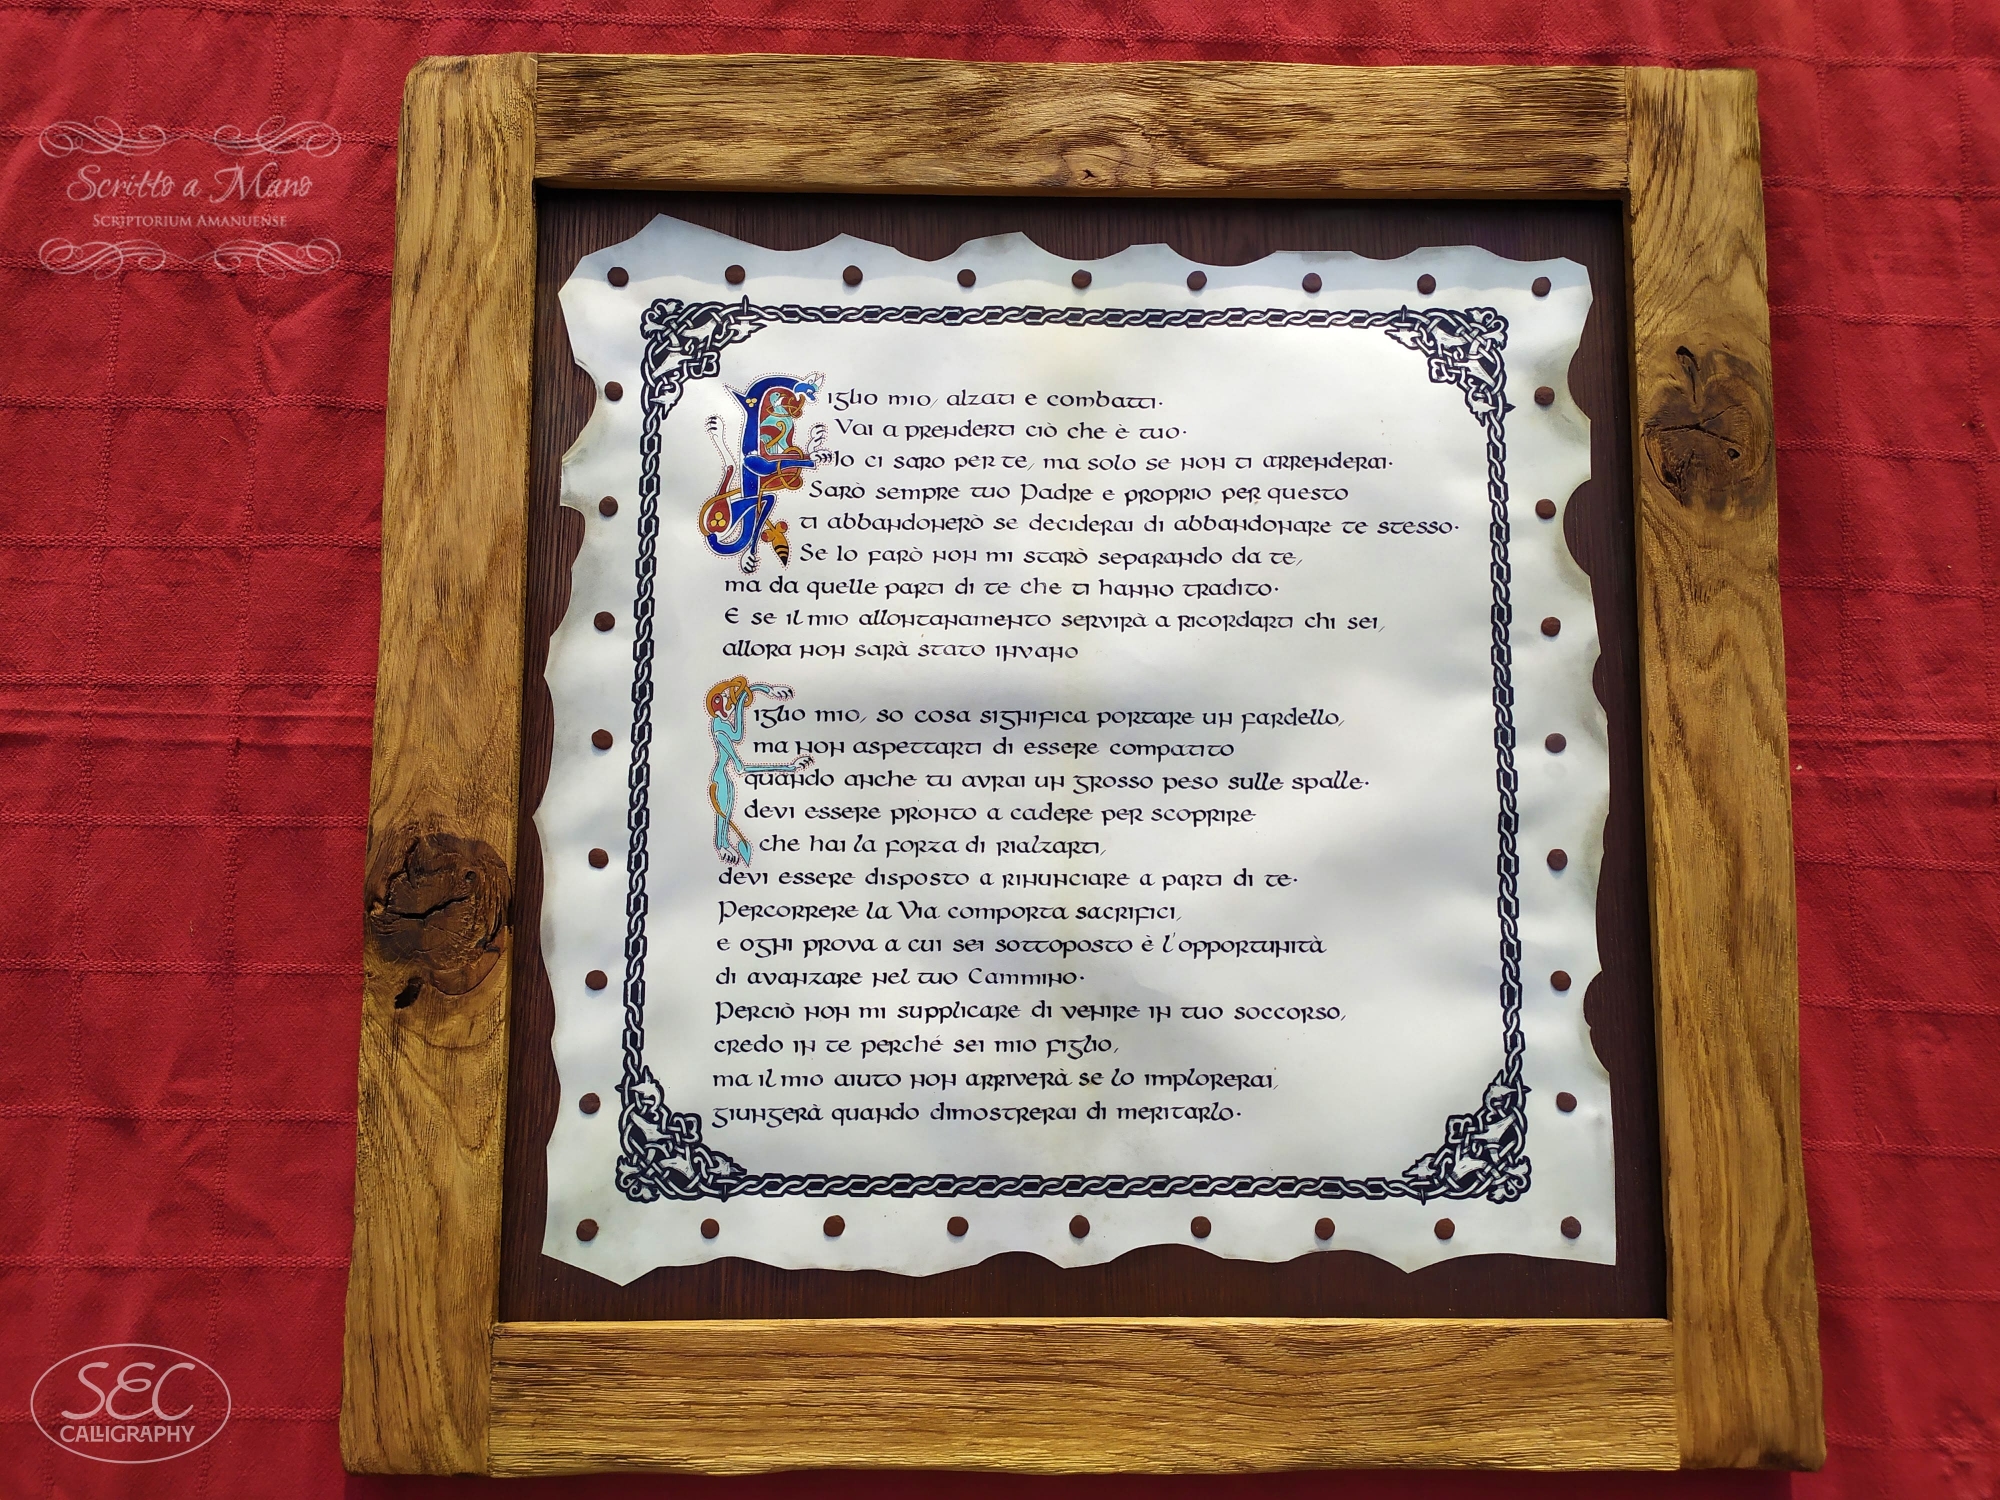 Scritto a Mano
Scriptorium Amanuense
Figlio mio, alzati e combatti.
Vai a prenderti ciò che è tuo.
Io ci saro per te, ma solo se non ti arrenderai.
Sarò sempre tuo Padre e proprio per questo
ti abbandonerò se deciderai di abbandonare te stesso.
Se lo farò non mi starò separando da te,
ma da quelle parti di te che ti hanno tradito.
E se il mio allontanamento servirà a ricordarti chi sei,
allora non sarà stato invano
Figlio mio, so cosa significa portare un fardello,
ma non aspettarti di essere compatito
quando anche tu avrai un grosso peso sulle spalle.
devi essere pronto a cadere per scoprire
che hai la forza di rialzarti,
devi essere disposto a rinunciare a parti di te.
Percorrere la Via comporta sacrifici,
e ogni prova a cui sei sottoposto è l'opportunità
di avanzare nel tuo Cammino.
Perciò non mi supplicare di venire in tuo soccorso,
credo in te perché sei mio figlio,
ma il mio aiuto non arriverà se lo implorerai,
giungerà quando dimostrerai di meritarlo.
SEC
CALLIGRAPHY